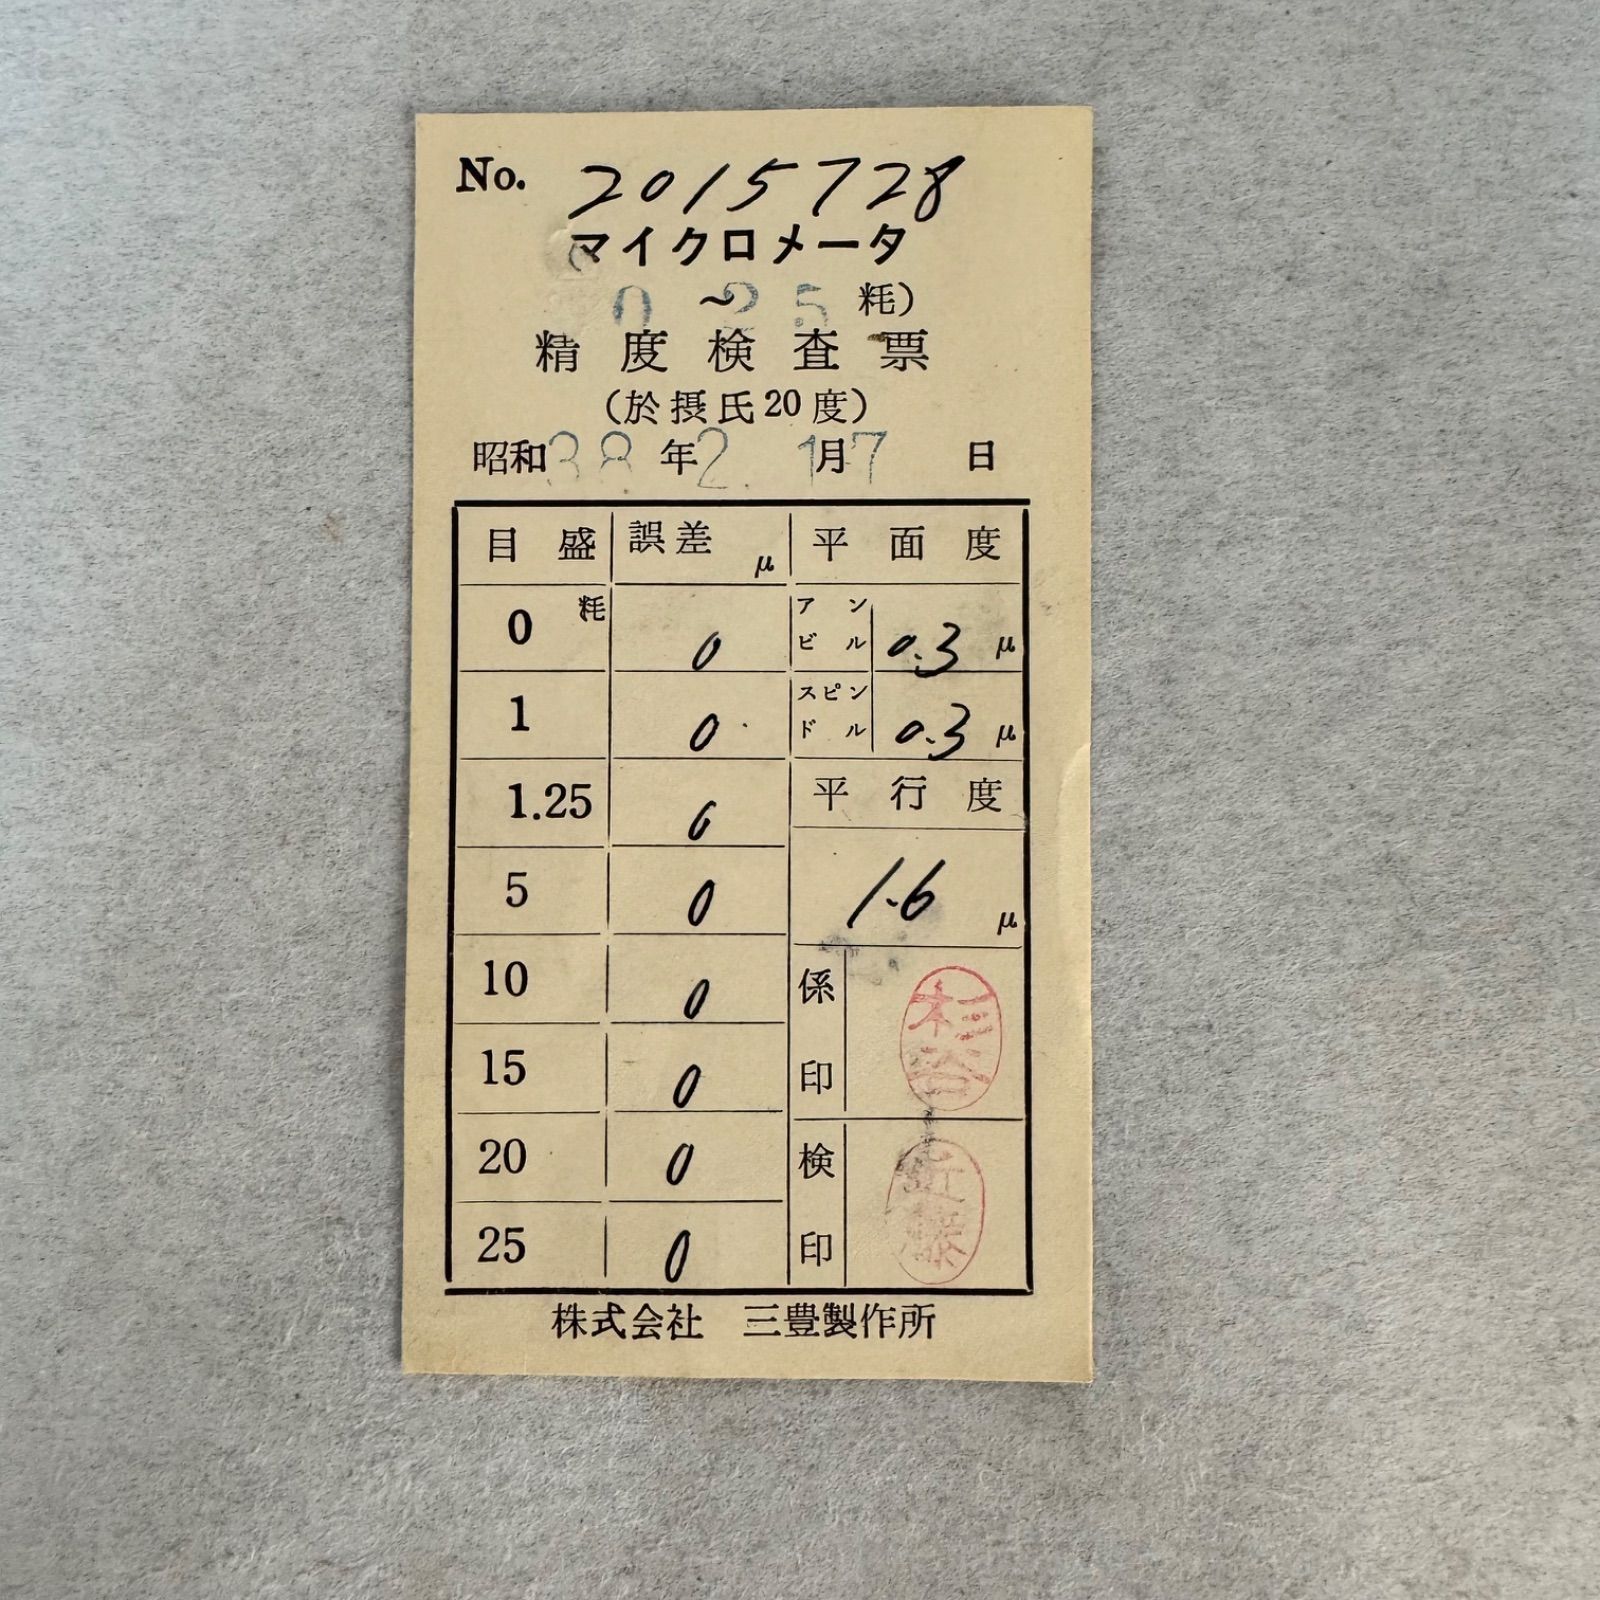 No. 2015728
マイクロメータ
0 〜 25 粍)
精度検査票
(於摂氏20度)
昭和 38 年 2. 月 17 日
目盛 誤差 μ 平面度
0 粍 0 アンビル 0.3 μ
1 0 スピンドル 0.3 μ
1.25 0 平行度
5 0 1.6 μ
10 0 係印 杉谷
15 0
20 0 検印 近藤
25 0
株式会社 三豊製作所